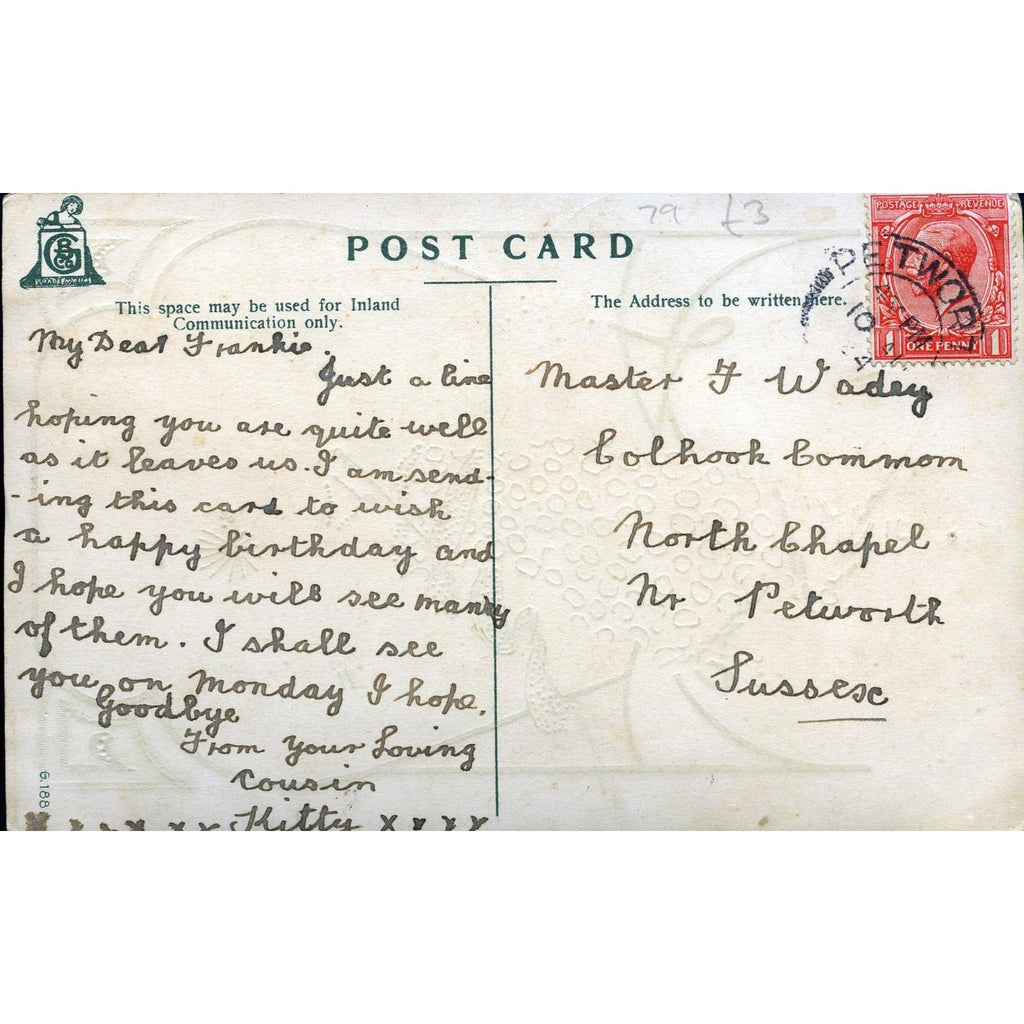 79 £3
POST CARD
This space may be used for Inland
Communication only.
My Dear Frankie.
Just a line
hoping you are quite well
as it leaves us. I am send-
-ing this card to wish
a happy birthday and
I hope you will see many
of them. I shall see
you on Monday I hope.
Goodbye
From your Loving
Cousin
Kitty x x x x
x x x x x x
G.188
The Address to be written here.
Master F Wadey
Colhook Common
North Chapel
Nr Petworth
Sussex
POSTAGE REVENUE
1 ONE PENNY 1
PETWORT
PM
10